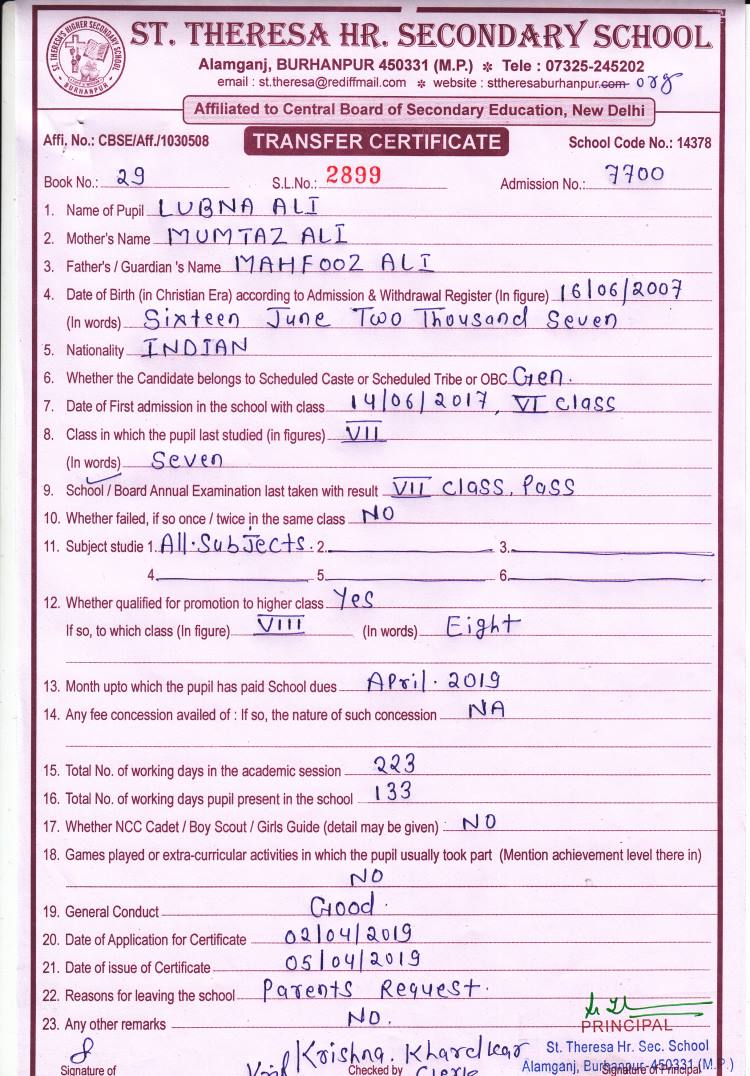 ST. THERESA'S HIGHER SECONDARY SCHOOL
BURHANPUR
ST. THERESA HR. SECONDARY SCHOOL
Alamganj, BURHANPUR 450331 (M.P.) * Tele : 07325-245202
email : st.theresa@rediffmail.com * website : sttheresaburhanpur.com org
Affiliated to Central Board of Secondary Education, New Delhi
Affi. No.: CBSE/Aff./1030508 TRANSFER CERTIFICATE School Code No.: 14378
Book No.: 29 S.L.No.: 2899 Admission No.: 7700
1. Name of Pupil LUBNA ALI
2. Mother's Name MUMTAZ ALI
3. Father's / Guardian 's Name MAHFOOZ ALI
4. Date of Birth (in Christian Era) according to Admission & Withdrawal Register (In figure) 16/06/2007
(In words) Sixteen June Two Thousand Seven
5. Nationality INDIAN
6. Whether the Candidate belongs to Scheduled Caste or Scheduled Tribe or OBC Gen.
7. Date of First admission in the school with class 14/06/2017, VI Class
8. Class in which the pupil last studied (in figures) VII
(In words) Seven
9. School / Board Annual Examination last taken with result VII Class, Pass
10. Whether failed, if so once / twice in the same class NO
11. Subject studie 1. All.Subjects. 2. 3.
4. 5. 6.
12. Whether qualified for promotion to higher class Yes
If so, to which class (In figure) VIII (In words) Eight
13. Month upto which the pupil has paid School dues April. 2019
14. Any fee concession availed of : If so, the nature of such concession NA
15. Total No. of working days in the academic session 223
16. Total No. of working days pupil present in the school 133
17. Whether NCC Cadet / Boy Scout / Girls Guide (detail may be given) NO
18. Games played or extra-curricular activities in which the pupil usually took part (Mention achievement level there in)
NO
19. General Conduct Good.
20. Date of Application for Certificate 02/04/2019
21. Date of issue of Certificate 05/04/2019
22. Reasons for leaving the school Parents Request.
23. Any other remarks NO.
PRINCIPAL
St. Theresa Hr. Sec. School
Krishna. Khardkar
Alamganj, Burhanpur-450331 (M.P.)
Signature of Checked by Clerk Signature of Principal